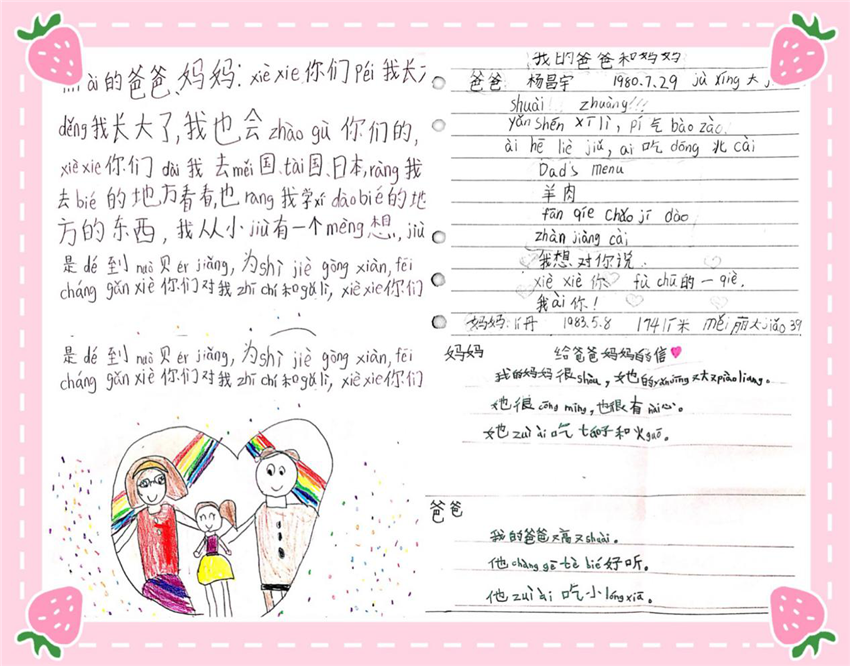 ài的爸爸、妈妈：xiè xie 你们 péi 我长大
děng我长大了,我也会 zhào gù 你们的,
xiè xie 你们 dài 我 去měi国、tài国、日本,ràng 我
去 bié 的地方看看,也 rang 我学xí dào bié 的地
方的东西，我从小 jiù 有一个mèng 想, jiù
是 dé 到 nuò 贝 ěr jiǎng, 为shì jiè gòng xiàn, fēi
cháng gǎn xiè 你们对我 zhī chí 和gǔ lì, xiè xie 你们
是 dé 到 nuò 贝 ěr jiǎng, 为shì jiè gòng xiàn, fēi
cháng gǎn xiè 你们对我 zhī chí 和gǔ lì, xiè xie 你们
我的爸爸和妈妈
爸爸 杨昌宇 1980.7.29 jù xíng 大
shuài!! zhuàng!!!
yǎn shén xī lì, pí 气 bào zào.
ài hē liè jiǔ, ai 吃 dōng 北 cài
Dad's menu
羊肉
fān qié chǎo jī dàn
zhàn jiàng cài
我想对你说
xiè xiè 你 fù chū 的一 qiè.
我 ài 你！
妈妈: 丹 1983.5.8 174 lí 米 měi 丽 大 jiǎo 39
妈妈 给爸爸妈妈的信
我的妈妈很shòu, 她的 又大又piào liang。
她很 cōng míng, 也很有 nài 心。
她 zuì ài 吃 和火guō。
爸爸
我的爸爸又高又shuài。
他 chàng gē tè bié 好听。
他 zuì ài 吃小 lóng xiā。